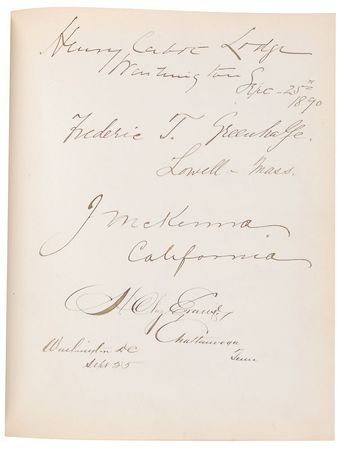 Henry Cabot Lodge
Washington Sept - 25th
1890
Frederic T. Greenhalge.
Lowell - Mass.
J McKenna
California
H Clay Evans,
Chattanooga
Tenn
Washington DC
Sept 25